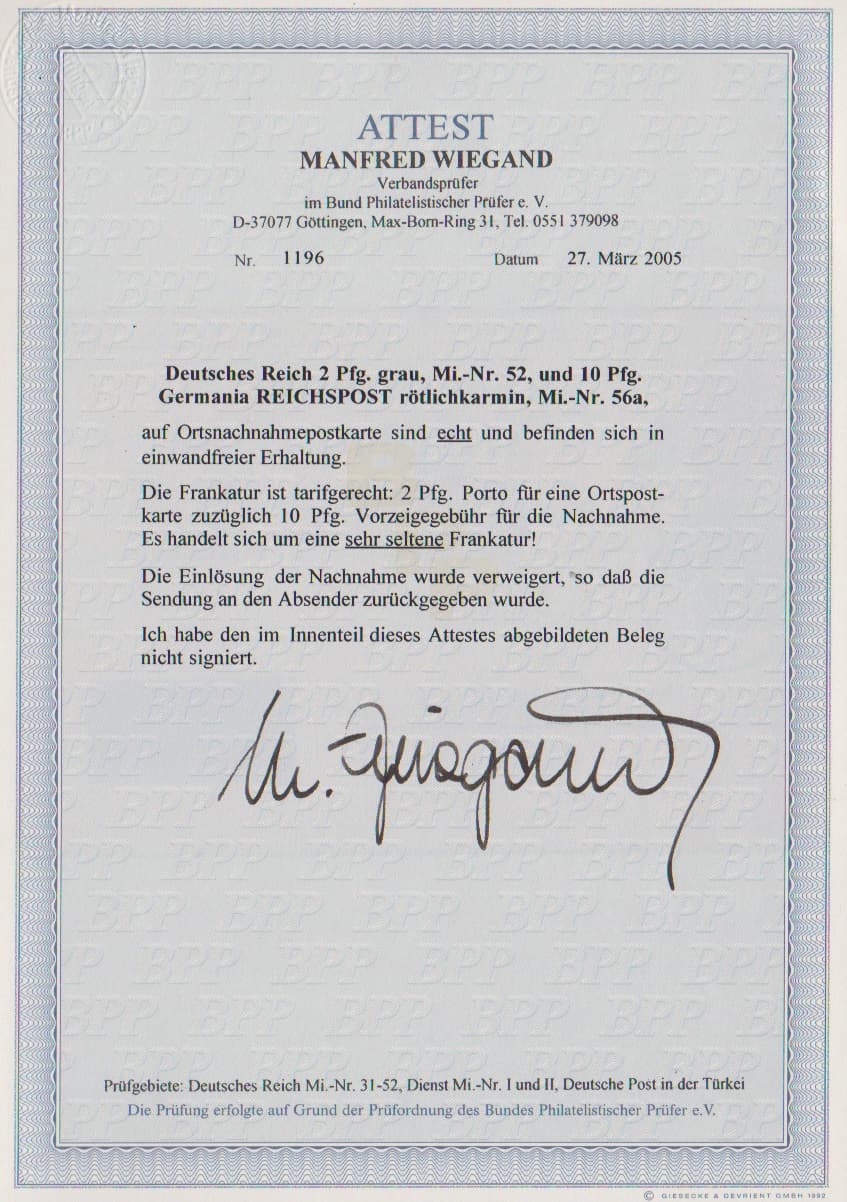 ATTEST
MANFRED WIEGAND
Verbandsprüfer
im Bund Philatelistischer Prüfer e. V.
D-37077 Göttingen, Max-Born-Ring 31, Tel. 0551 379098
Nr. 1196 Datum 27. März 2005
Deutsches Reich 2 Pfg. grau, Mi.-Nr. 52, und 10 Pfg.
Germania REICHSPOST rötlichkarmin, Mi.-Nr. 56a,
auf Ortsnachnahmepostkarte sind echt und befinden sich in
einwandfreier Erhaltung.
Die Frankatur ist tarifgerecht: 2 Pfg. Porto für eine Ortspost-
karte zuzüglich 10 Pfg. Vorzeigegebühr für die Nachnahme.
Es handelt sich um eine sehr seltene Frankatur!
Die Einlösung der Nachnahme wurde verweigert, so daß die
Sendung an den Absender zurückgegeben wurde.
Ich habe den im Innenteil dieses Attestes abgebildeten Beleg
nicht signiert.
M. Wiegand
Prüfgebiete: Deutsches Reich Mi.-Nr. 31-52, Dienst Mi.-Nr. I und II, Deutsche Post in der Türkei
Die Prüfung erfolgte auf Grund der Prüfordnung des Bundes Philatelistischer Prüfer e.V.
© GIESECKE & DEVRIENT GMBH 1992